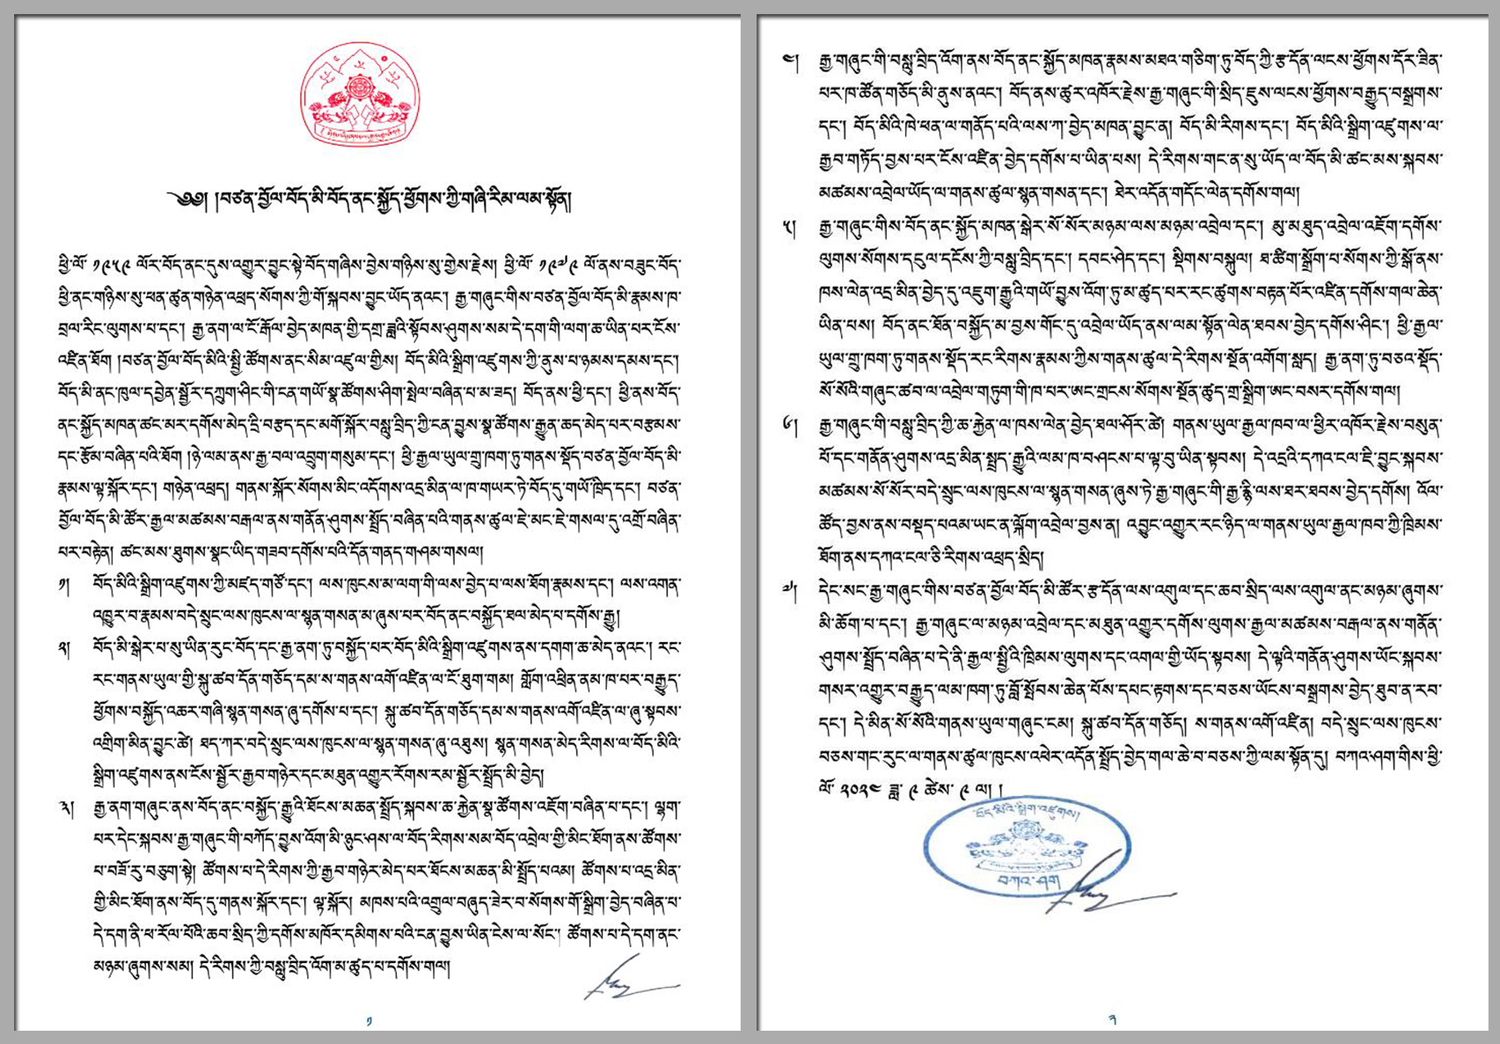 ༄༅། །བཙན་བྱོལ་བོད་མི་བོད་ནང་སྐྱོད་ཕྱོགས་ཀྱི་གཞི་རིམ་ལམ་སྟོན།
ཕྱི་ལོ་ ༡༩༥༩ ལོར་བོད་ནང་དུས་འགྱུར་བྱུང་སྟེ་བོད་གཞིས་བྱེས་གཉིས་སུ་གྱེས་རྗེས། ཕྱི་ལོ་ ༡༩༧༩ ལོ་ནས་བཟུང་བོད་
ཕྱི་ནང་གཉིས་སུ་ཕན་ཚུན་གཉེན་འཕྲད་སོགས་ཀྱི་གོ་སྐབས་བྱུང་ཡོད་ནའང་། རྒྱ་གཞུང་གིས་བཙན་བྱོལ་བོད་མི་རྣམས་ཁ་
བྲལ་རིང་ལུགས་པ་དང་། རྒྱ་ནག་ལ་ངོ་རྒོལ་བྱེད་མཁན་གྱི་དགྲ་ཟླའི་སྟོབས་ཤུགས་སམ་དེ་དག་གི་ལག་ཆ་ཡིན་པར་ངོས་
འཛིན་ཐོག །བཙན་བྱོལ་བོད་མིའི་སྤྱི་ཚོགས་ནང་སིམ་འཛུལ་གྱིས། བོད་མིའི་སྒྲིག་འཛུགས་ཀྱི་ནུས་པ་ཉམས་དམས་དང་།
བོད་མི་ནང་ཁུལ་དབྱེན་སྦྱོར་དཀྲུག་ཤིང་གི་ངན་གཡོ་སྣ་ཚོགས་ཤིག་སྤེལ་བཞིན་པ་མ་ཟད། བོད་ནས་ཕྱི་དང་། ཕྱི་ནས་བོད་
ནང་སྐྱོད་མཁན་ཚང་མར་དགོས་མེད་དྲི་བརྩད་དང་མགོ་སྐོར་བསླུ་བྲིད་ཀྱི་ངན་བྱུས་སྣ་ཚོགས་རྒྱུན་ཆད་མེད་པར་བརྩམས་
དང་རྩོམ་བཞིན་པའི་ཐོག །ཉེ་ལམ་ནས་རྒྱ་བལ་འབྲུག་གསུམ་དང་། ཕྱི་རྒྱལ་ཡུལ་གྲུ་ཁག་ཏུ་གནས་སྡོད་བཙན་བྱོལ་བོད་མི་
རྣམས་ལྟ་སྐོར་དང་། གཉེན་འཕྲད། གནས་སྐོར་སོགས་མིང་འདོགས་འདྲ་མིན་ལ་ཁ་གཡར་ཏེ་བོད་དུ་གཡོ་ཁྲིད་དང་། བཙན་
བྱོལ་བོད་མི་ཚོར་རྒྱལ་མཚམས་བརྒལ་ནས་གནོན་ཤུགས་སྤྲོད་བཞིན་པའི་གནས་ཚུལ་ཇེ་མང་ཇེ་གསལ་དུ་འགྲོ་བཞིན་
པར་བརྟེན། ཚང་མས་ཐུགས་སྣང་ཡིད་གཟབ་དགོས་པའི་དོན་གནད་གཤམ་གསལ།
༡། བོད་མིའི་སྒྲིག་འཛུགས་ཀྱི་མཛད་གཙོ་དང་། ལས་ཁུངས་མ་ལག་གི་ལས་བྱེད་པ་ལས་ཐོག་རྣམས་དང་། ལས་འགན་
འཁུར་བ་རྣམས་བདེ་སྲུང་ལས་ཁུངས་ལ་སྙན་གསན་མ་ཞུས་པར་བོད་ནང་བསྐྱོད་ཐལ་མེད་པ་དགོས་རྒྱུ།
༢། བོད་མི་སྒེར་པ་སུ་ཡིན་རུང་བོད་དང་རྒྱ་ནག་ཏུ་བསྐྱོད་པར་བོད་མིའི་སྒྲིག་འཛུགས་ནས་དགག་ཆ་མེད་ནའང་། རང་
རང་གནས་ཡུལ་གྱི་སྐུ་ཚབ་དོན་གཅོད་དམ་ས་གནས་འགོ་འཛིན་ལ་ངོ་ཐུག་གམ། གློག་འཕྲིན་ནམ་ཁ་པར་བརྒྱུད་
ཕྱོགས་བསྐྱོད་འཆར་གཞི་སྙན་གསན་ཞུ་དགོས་པ་དང་། སྐུ་ཚབ་དོན་གཅོད་དམ་ས་གནས་འགོ་འཛིན་ལ་ཞུ་སྟབས་
འགྲིག་མིན་བྱུང་ཚེ། ཐད་ཀར་བདེ་སྲུང་ལས་ཁུངས་ལ་སྙན་གསན་ཞུ་འཐུས། སྙན་གསན་མེད་རིགས་ལ་བོད་མིའི་
སྒྲིག་འཛུགས་ནས་ངོས་སྦྱོར་རྒྱབ་གཉེར་དང་མཐུན་འགྱུར་རོགས་རམ་སྦྱོར་སྤྲོད་མི་བྱེད།
༣། རྒྱ་ནག་གཞུང་ནས་བོད་ནང་བསྐྱོད་རྒྱུའི་ཐོངས་མཆན་སྤྲོད་སྐབས་ཆ་རྐྱེན་སྣ་ཚོགས་འཇོག་བཞིན་པ་དང་། ལྷག་
པར་དེང་སྐབས་རྒྱ་གཞུང་གི་བཀོད་བྱུས་འོག་མི་ཉུང་ཤས་ལ་བོད་རིགས་སམ་བོད་འབྲེལ་གྱི་མིང་ཐོག་ནས་ཚོགས་
པ་བཟོ་རུ་བཅུག་སྟེ། ཚོགས་པ་དེ་རིགས་ཀྱི་རྒྱབ་གཉེར་མེད་པར་ཐོངས་མཆན་མི་སྤྲོད་པའམ། ཚོགས་པ་འདྲ་མིན་
གྱི་མིང་ཐོག་ནས་བོད་དུ་གནས་སྐོར་དང་། ལྟ་སྐོར། མཁས་པའི་འགྲུལ་བཞུད་ཟེར་བ་སོགས་གོ་སྒྲིག་བྱེད་བཞིན་པ་
དེ་དག་ནི་ཕ་རོལ་པོའི་ཆབ་སྲིད་ཀྱི་དགོས་མཁོར་དམིགས་པའི་ངན་བྱུས་ཡིན་ངེས་ལ་སོང་། ཚོགས་པ་དེ་དག་ནང་
མཉམ་ཞུགས་སམ། དེ་རིགས་ཀྱི་བསླུ་བྲིད་འོག་མ་ཚུད་པ་དགོས་གལ།
༡
༤། རྒྱ་གཞུང་གི་བསླུ་བྲིད་འོག་ནས་བོད་ནང་སྐྱོད་མཁན་རྣམས་མཐའ་གཅིག་ཏུ་བོད་ཀྱི་རྩ་དོན་ལངས་ཕྱོགས་དོར་ཟིན་
པར་ཁ་ཚོན་གཅོད་མི་ནུས་ནའང་། བོད་ནས་ཚུར་འཁོར་རྗེས་རྒྱ་གཞུང་གི་སྲིད་ཇུས་ལངས་ཕྱོགས་བརྒྱུད་བསྒྲགས་
དང་། བོད་མིའི་ཁེ་ཕན་ལ་གནོད་པའི་ལས་ཀ་བྱེད་མཁན་བྱུང་ན། བོད་མི་རིགས་དང་། བོད་མིའི་སྒྲིག་འཛུགས་ལ་
རྒྱབ་གཏོད་བྱས་པར་ངོས་འཛིན་བྱེད་དགོས་པ་ཡིན་པས། དེ་རིགས་གང་ན་སུ་ཡོད་ལ་བོད་མི་ཚང་མས་སྐབས་
མཚམས་འབྲེལ་ཡོད་ལ་གནས་ཚུལ་སྙན་གསན་དང་། ཐེར་འདོན་གདོང་ལེན་དགོས་གལ།
༥། རྒྱ་གཞུང་གིས་བོད་ནང་སྐྱོད་མཁན་སྒེར་སོ་སོར་མཉམ་ལས་མཉམ་འབྲེལ་དང་། མུ་མཐུད་འབྲེལ་འཇོག་དགོས་
ལུགས་སོགས་དངུལ་དངོས་ཀྱི་བསླུ་བྲིད་དང་། དབང་ཤེད་དང་། སྡིགས་བསྐུལ། ཐ་ཚིག་སྒྲོག་པ་སོགས་ཀྱི་སྒོ་ནས་
ཁས་ལེན་འདྲ་མིན་བྱེད་དུ་འཇུག་རྒྱུའི་གཡོ་བྱུས་འོག་ཏུ་མ་ཚུད་པར་རང་ཚུགས་བརྟན་པོར་འཛིན་དགོས་གལ་ཆེན་
ཡིན་པས། བོད་ནང་ཐོན་བསྐྱོད་མ་བྱས་གོང་དུ་འབྲེལ་ཡོད་ནས་ལམ་སྟོན་ལེན་ཐབས་བྱེད་དགོས་ཤིང་། ཕྱི་རྒྱལ་
ཡུལ་གྲུ་ཁག་ཏུ་གནས་སྡོད་རང་རིགས་རྣམས་ཀྱིས་གནས་ཚུལ་དེ་རིགས་སྔོན་འགོག་སླད། རྒྱ་ནག་ཏུ་བཅའ་སྡོད་
སོ་སོའི་གཞུང་ཚབ་ལ་འབྲེལ་གཏུག་གི་ཁ་པར་ཨང་གྲངས་སོགས་སྔོན་ཚུད་གྲ་སྒྲིག་ཨང་བསར་དགོས་གལ།
༦། རྒྱ་གཞུང་གི་བསླུ་བྲིད་ཀྱི་ཆ་རྐྱེན་ལ་ཁས་ལེན་བྱེད་ཐལ་ཤོར་ཚེ། གནས་ཡུལ་རྒྱལ་ཁབ་ལ་ཕྱིར་འཁོར་རྗེས་བསུན་
པོ་དང་གནོན་ཤུགས་འདྲ་མིན་སྤྲད་རྒྱུའི་ལམ་ཁ་བཤངས་པ་ལྟ་བུ་ཡིན་སྟབས། དེ་འདྲའི་དཀའ་ངལ་ཇི་བྱུང་སྐབས་
མཚམས་སོ་སོར་བདེ་སྲུང་ལས་ཁུངས་ལ་སྙན་གསན་ཞུས་ཏེ་རྒྱ་གཞུང་གི་རྒྱ་རྙི་ལས་ཐར་ཐབས་བྱེད་དགོས། འོལ་
ཚོད་བྱས་ནས་བསྡད་པའམ་ཡང་ན་ལྐོག་འབྲེལ་བྱས་ན། འབྱུང་འགྱུར་རང་ཉིད་ལ་གནས་ཡུལ་རྒྱལ་ཁབ་ཀྱི་ཁྲིམས་
ཐོག་ནས་དཀའ་ངལ་ཅི་རིགས་འཕྲད་སྲིད།
༧། དེང་སང་རྒྱ་གཞུང་གིས་བཙན་བྱོལ་བོད་མི་ཚོར་རྩ་དོན་ལས་འགུལ་དང་ཆབ་སྲིད་ལས་འགུལ་ནང་མཉམ་ཞུགས་
མི་ཆོག་པ་དང་། རྒྱ་གཞུང་ལ་མཉམ་འབྲེལ་དང་མཐུན་འགྱུར་དགོས་ལུགས་རྒྱལ་མཚམས་བརྒལ་ནས་གནོན་
ཤུགས་སྤྲོད་བཞིན་པ་དེ་ནི་རྒྱལ་སྤྱིའི་ཁྲིམས་ལུགས་དང་འགལ་གྱི་ཡོད་སྟབས། དེ་ལྟའི་གནོན་ཤུགས་ཡོང་སྐབས་
གསར་འགྱུར་བརྒྱུད་ལམ་ཁག་ཏུ་བློ་སྤོབས་ཆེན་པོས་དཔང་རྟགས་དང་བཅས་ཡོངས་བསྒྲགས་བྱེད་ཐུབ་ན་རབ་
དང་། དེ་མིན་སོ་སོའི་གནས་ཡུལ་གཞུང་ངམ། སྐུ་ཚབ་དོན་གཅོད། ས་གནས་འགོ་འཛིན། བདེ་སྲུང་ལས་ཁུངས་
བཅས་གང་རུང་ལ་གནས་ཚུལ་ཁུངས་འཕེར་འདོན་སྤྲོད་བྱེད་གལ་ཆེ་བ་བཅས་ཀྱི་ལམ་སྟོན་དུ། བཀའ་ཤག་གིས་ཕྱི་
ལོ་ ༢༠༢༤ ཟླ་ ༩ ཚེས་ ༩ ལ། །
བོད་མིའི་སྒྲིག་འཛུགས།
བཀའ་ཤག
༢